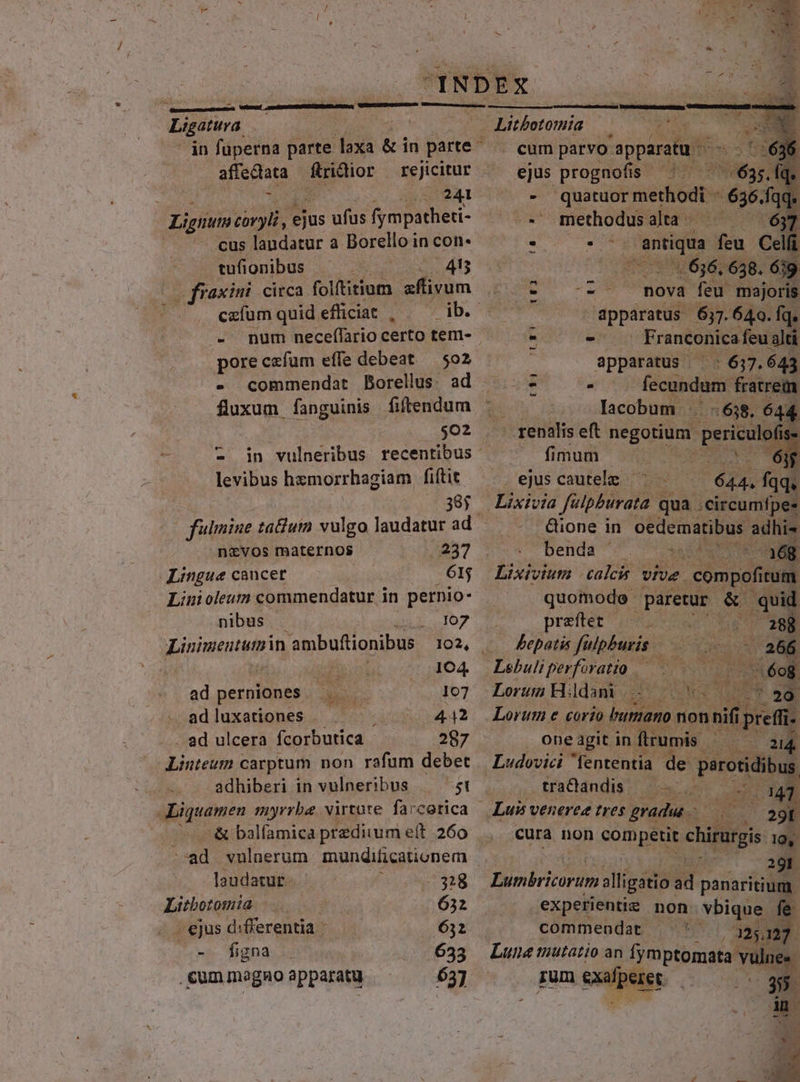 INDEX
Ligatura
in ſuperna parte laxa & in parte
affectata ſtrictior rejicitur
241
Lignum coryli, ejus uſus ſympatheti-
cus laudatur a Borello in con-
tuſionibus 413
fraxini circa ſolſtitium æſtivum
cæſum quid efficiat ib.
- num neceſſario certo tem-
pore cæſum eſſe debeat 502
- commendat Borellus ad
fluxum ſanguinis ſiſtendum
502
- in vulneribus recentibus
levibus hæmorrhagiam ſiſtit
385
fulmine tactum vulgo laudatur ad
nævos maternos 237
Linguæ cancer 615
Lini oleum commendatur in pernio-
nibus 107
Linimentum in ambuſtionibus 102,
104
ad perniones 107
ad luxationes 442
ad ulcera ſcorbutica 287
Linteum carptum non raſum debet
adhiberi in vulneribus 51
Liquamen myrrhæ virtute ſarcotica
& balſamica præditum eſt 260
ad vulnerum mundificationem
laudatur 328
Lithotomia 632
ejus differentia 632
- ſigna 633
cum magno apparatu 637
Lithotomia
cum parvo apparatu 636
ejus prognoſis 635. ſq.
- quatuor methodi 636. ſqq.
- methodus alta 637
- - antiqua ſeu Celſi
636. 638. 639
- - nova ſeu majoris
apparatus 637. 640. ſq.
- - Franconica ſeu alti
apparatus 637. 643
- - ſecundum fratrem
Iacobum 638. 644
renalis eſt negotium periculoſis-
ſimum 635
ejus cautelæ 644. ſqq.
Lixivia ſulphurata qua circumſpe-
ctione in oedematibus adhi-
benda 168
Lixivium calcis vivæ compoſitum
quomodo paretur & quid
præſtet 288
hepatis ſulphuris 266
Lobuli perforatio 608
Lorum Hildani 20
Lorum e corio humano non niſi preſſi-
one agit in ſtrumis 214
Ludovici ſententia de parotidibus
tractandis 147
Luis venereæ tres gradus 291
cura non competit chirurgis 10,
291
Lumbricorum alligatio ad panaritium
experientiæ non vbique ſe
commendat 125. 127
Lunæ mutatio an ſymptomata vulne-
rum exaſperet 35
in